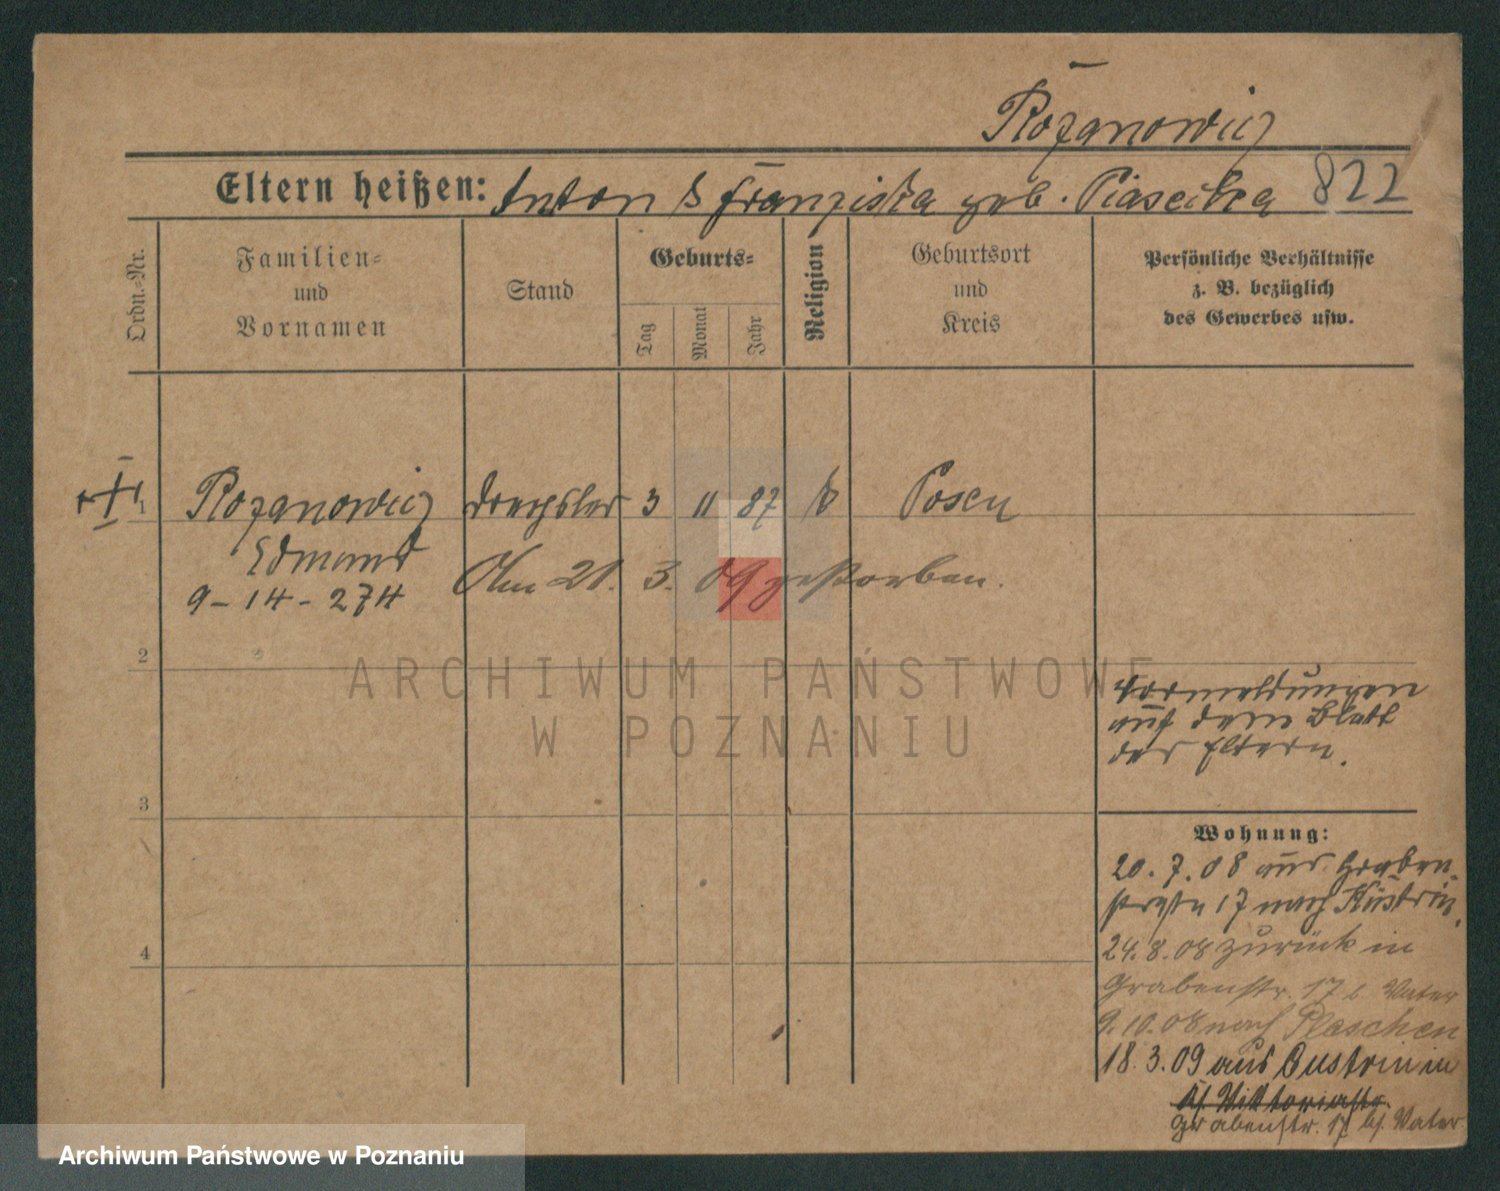 Rozanowicz
Eltern heißen: Anton & Franziska geb. Piasecka 822
Ordn.-Nr.
Familien-
und
Vornamen
Stand
Geburts-
Tag
Monat
Jahr
Religion
Geburtsort
und
Kreis
Persönliche Verhältnisse
z. B. bezüglich
des Gewerbes usw.
1 Rozanowicz Drechsler 3 11 87 k Posen
Edmund
Am 21. 3. 09 gestorben.
9-14-274
2
ARCHIWUM PAŃSTWOWE
W POZNANIU
Vormeldungen
auf dem Blatt
der Eltern.
3
Wohnung:
20.7.08 aus Graben-
straße 17 nach Küstrin.
24.8.08 zurück in
4
Grabenstr. 17 b Vater
9.10.08 nach Pleschen
18.3.09 aus Custrin in
Viktoriastr.
Grabenstr. 17 bf. Vater
Archiwum Państwowe w Poznaniu